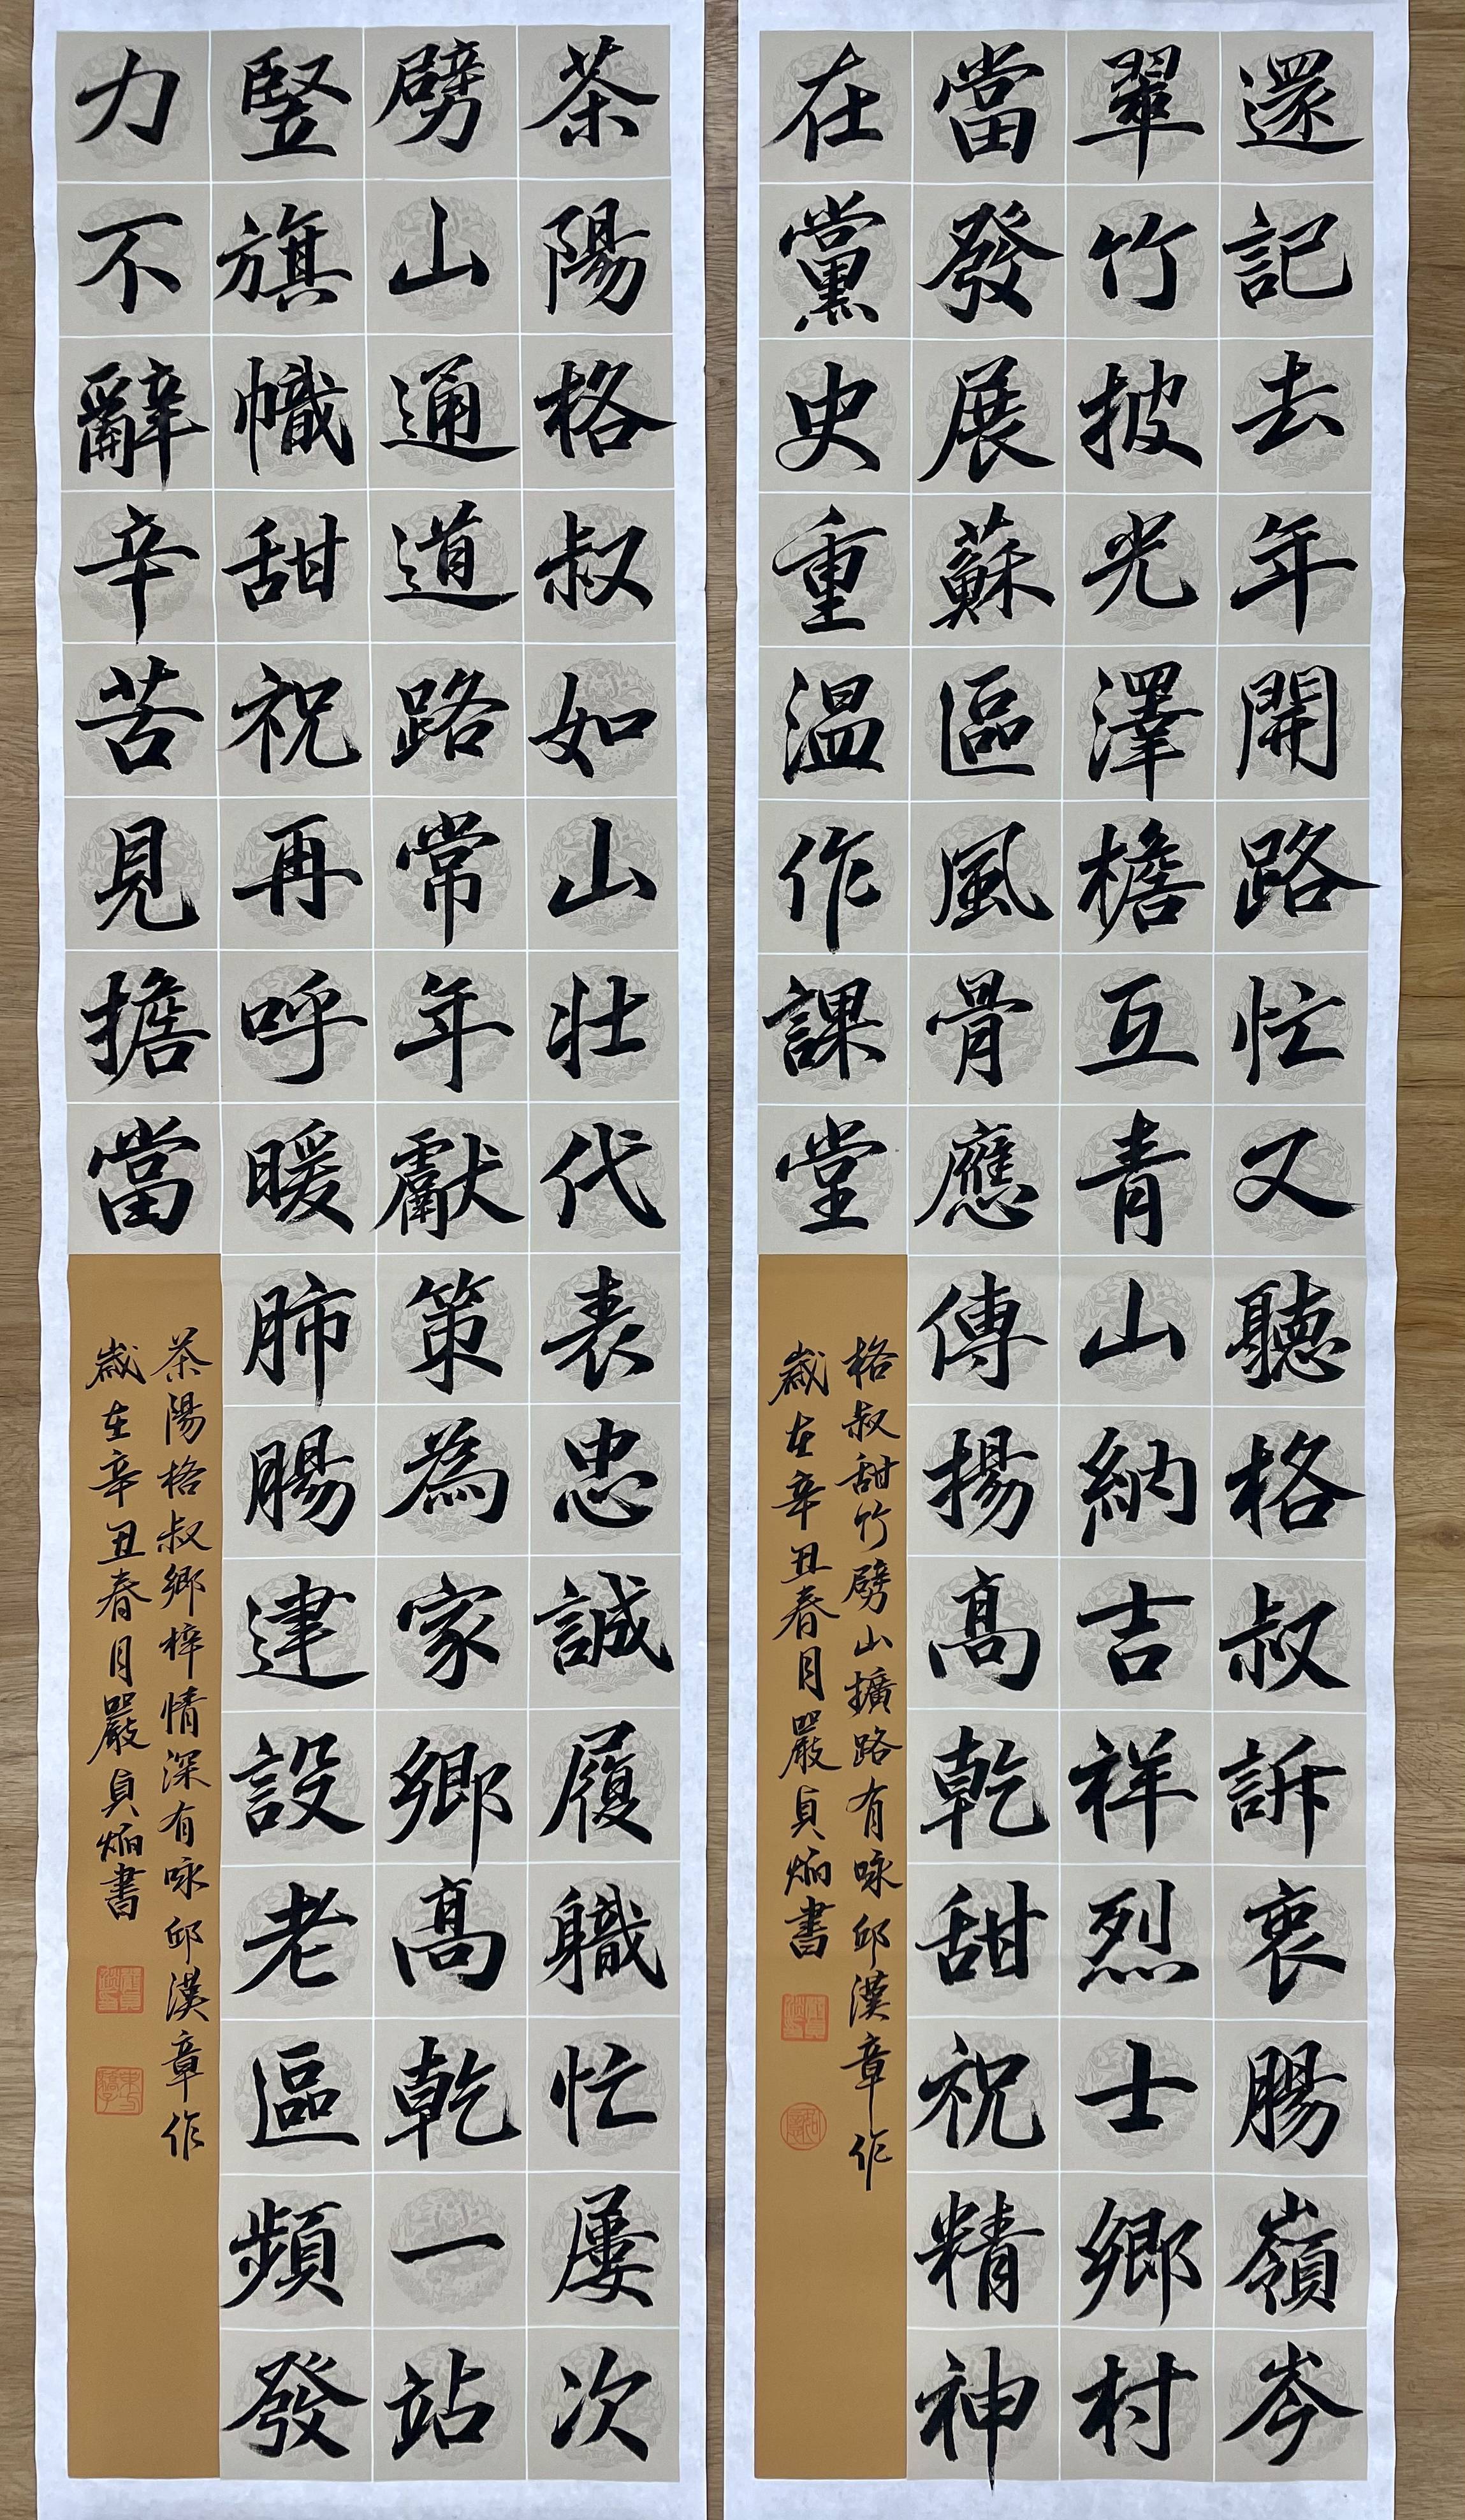 還記去年開路忙又聽格叔訴衷腸嶺岑
翠竹披光澤檐互青山納吉祥烈士鄉村
當發展蘇區風骨應傳揚髙乾甜祝精神
在黨史重温作課堂
格叔甜竹劈山擴路有咏邱漢章作
歲在辛丑春月嚴貞炳書
茶陽格叔如山壯代表忠誠履職忙屢次
劈山通道路常年獻策為家鄉髙乾一站
豎旗幟甜祝再呼暖肺腸建設老區頻發
力不辭辛苦見擔當
茶陽格叔鄉梓情深有咏邱漢章作
歲在辛丑春月嚴貞炳書